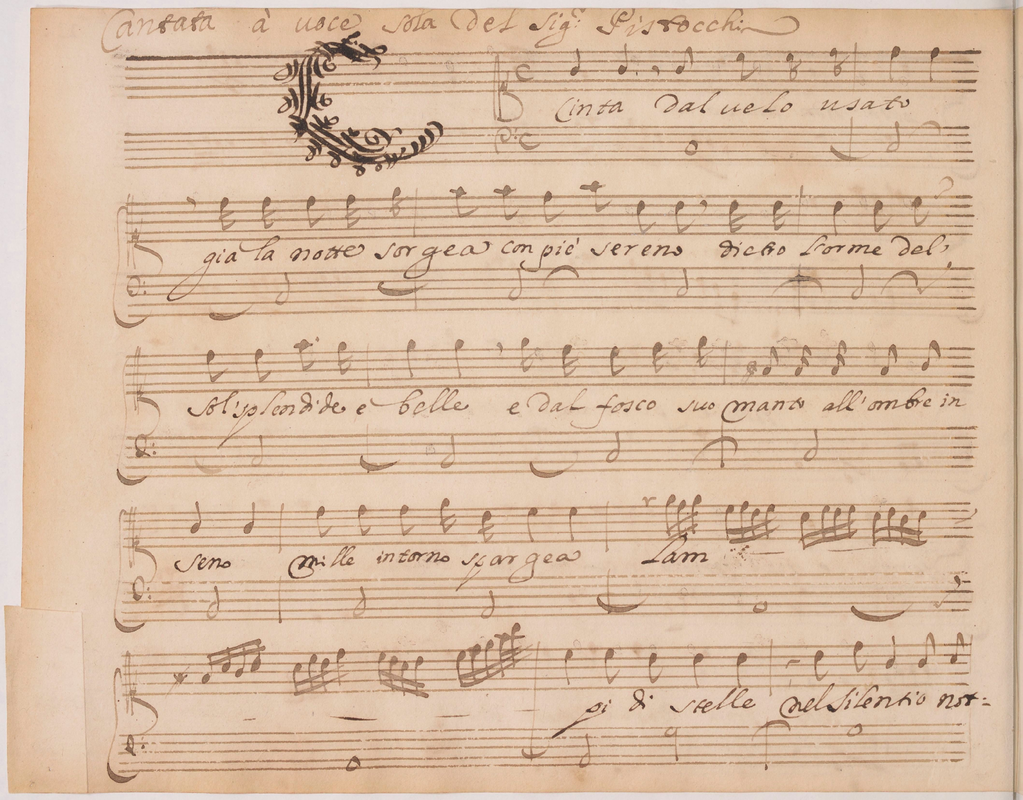 Cantata à voce sola del Sig.r Pistocchi
Cinta dal velo usato
già la notte sorgea con piè sereno dietro l'orme del
sol splendide e belle e dal fosco suo manto all'ombre in
seno mille intorno spargea Lam
pi di stelle nel silentio not=